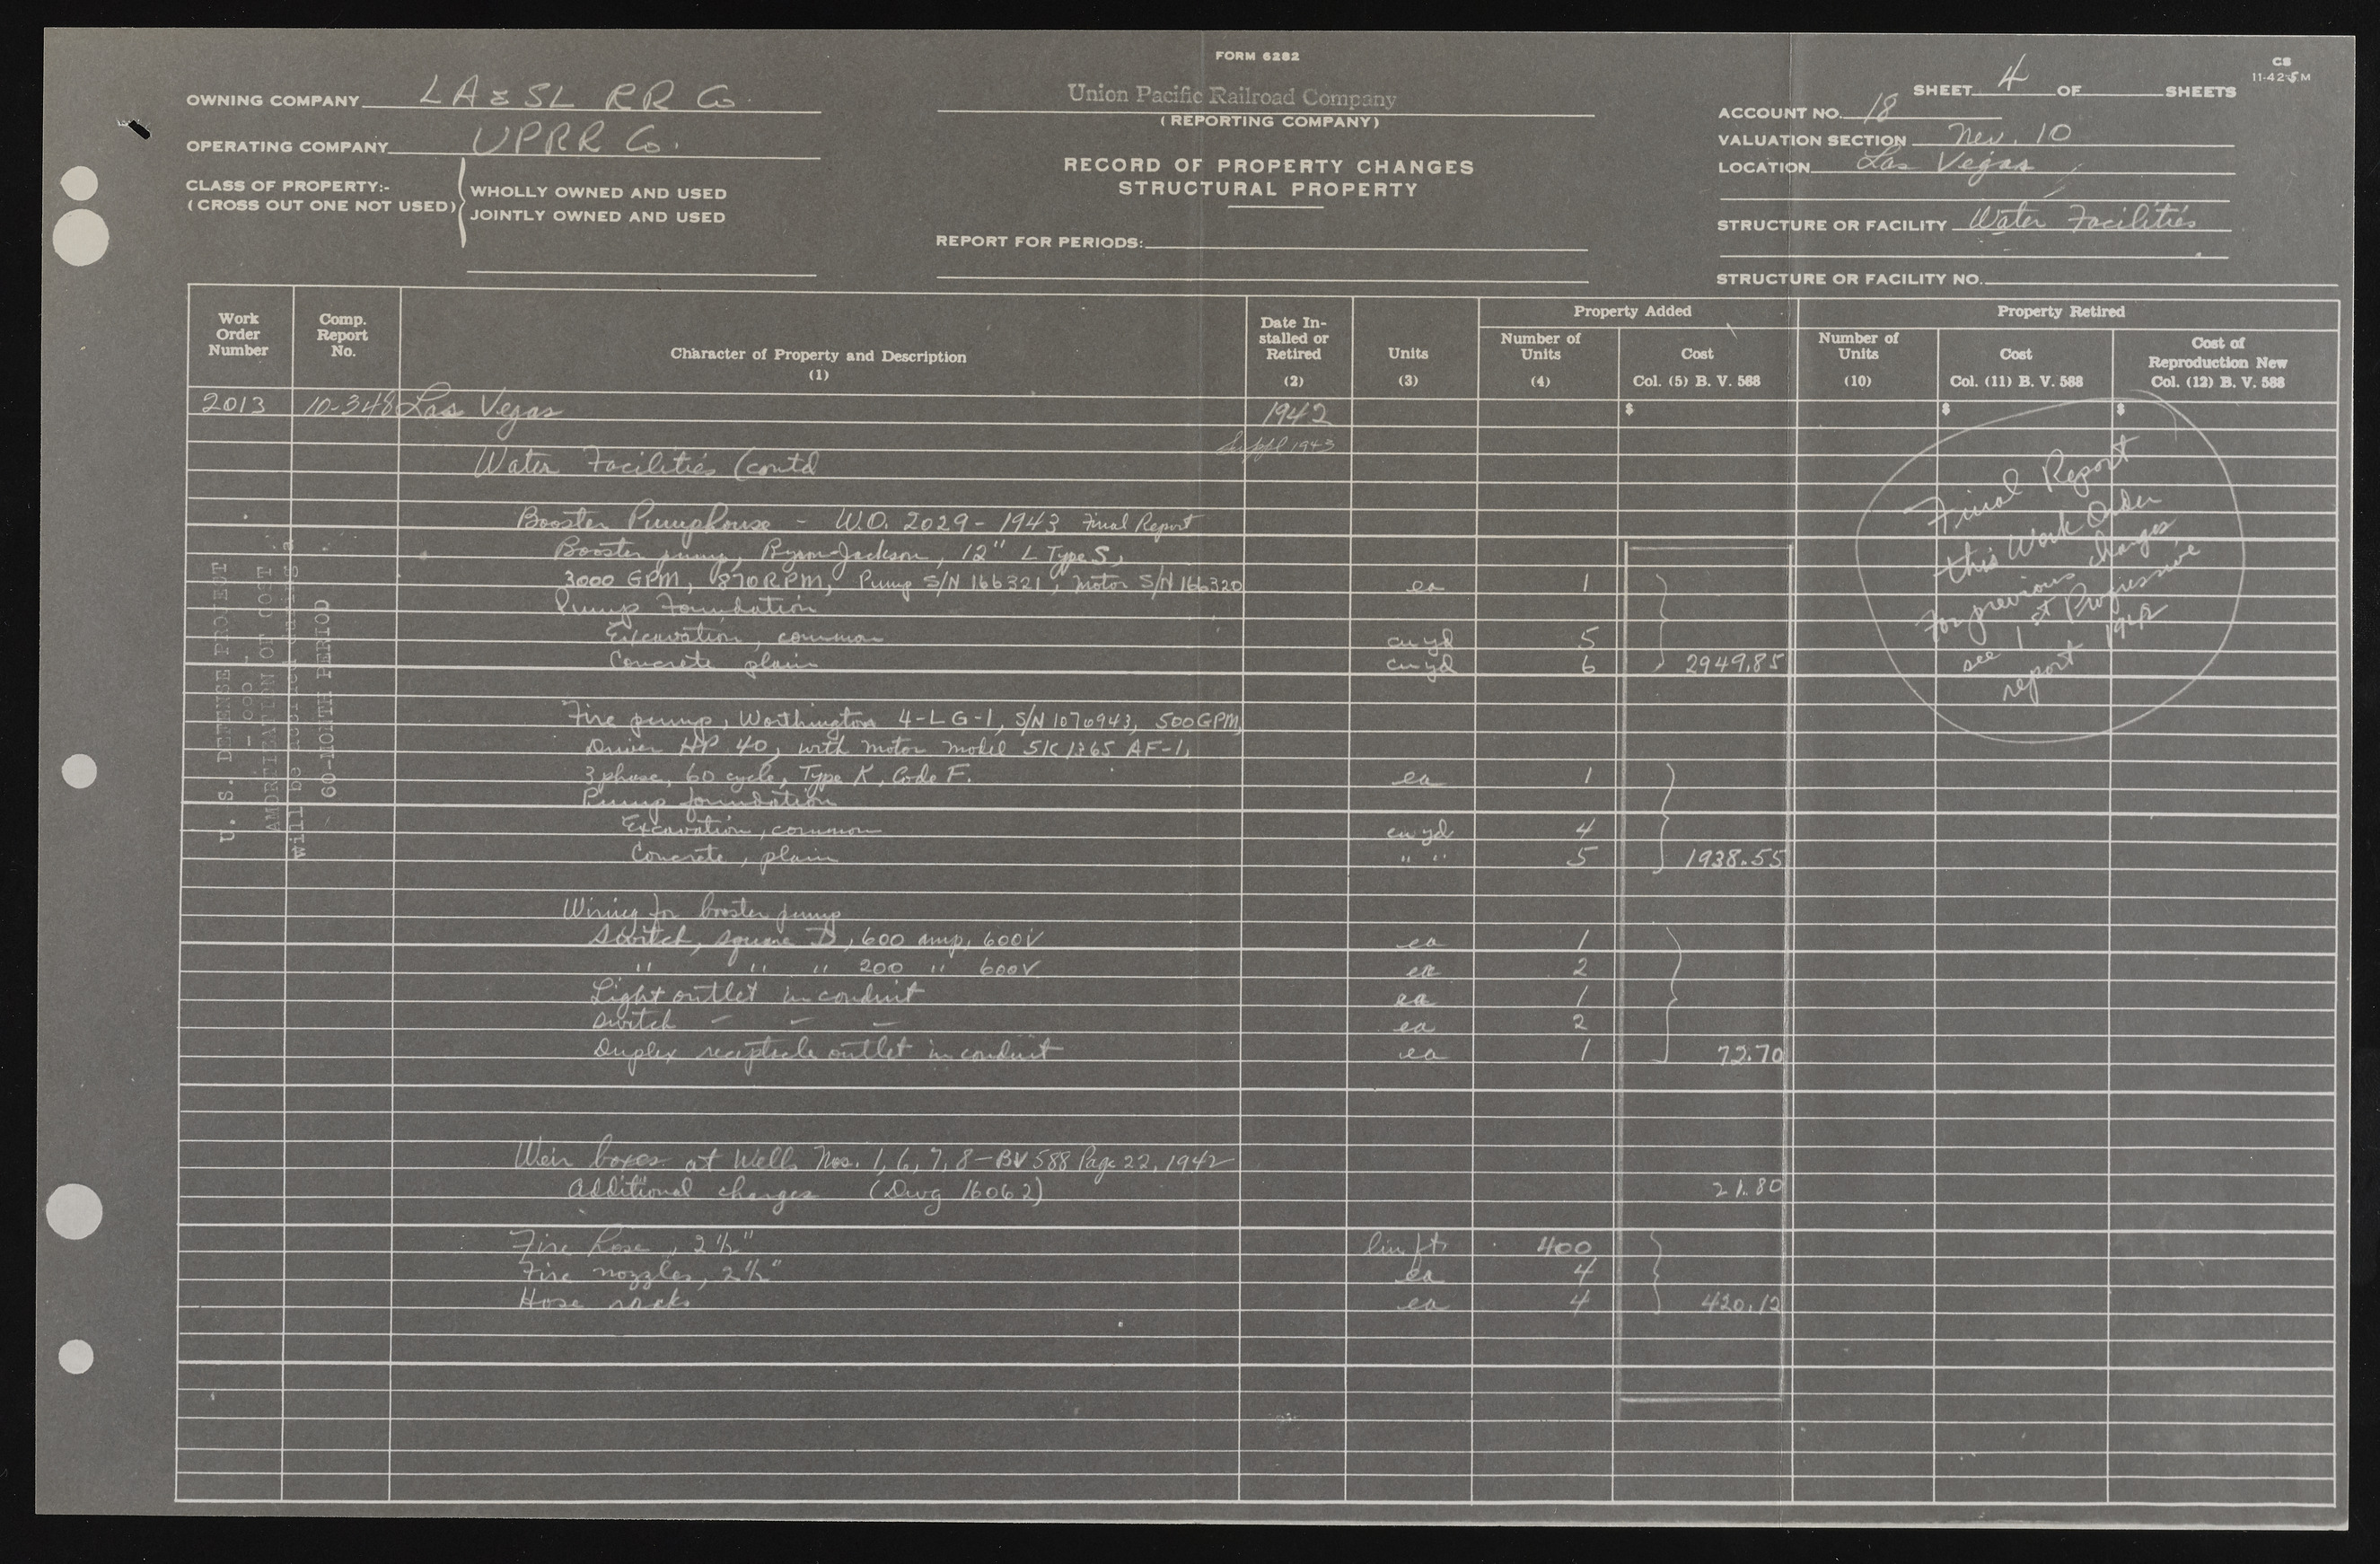 FORM 6282
CS
11-42-5M
OWNING COMPANY LA & SL RR Co.
OPERATING COMPANY UPRR Co.
CLASS OF PROPERTY:-
(CROSS OUT ONE NOT USED)
WHOLLY OWNED AND USED
JOINTLY OWNED AND USED
Union Pacific Railroad Company
(REPORTING COMPANY)
RECORD OF PROPERTY CHANGES
STRUCTURAL PROPERTY
REPORT FOR PERIODS:
SHEET 4 OF SHEETS
ACCOUNT NO. 18
VALUATION SECTION Nev. 10
LOCATION Las Vegas
STRUCTURE OR FACILITY Water Facilities
STRUCTURE OR FACILITY NO.
Work Order Number
Comp. Report No.
Character of Property and Description
(1)
Date Installed or Retired
(2)
Units
(3)
Property Added
Number of Units
(4)
Cost
Col. (5) B. V. 588
Property Retired
Number of Units
(10)
Cost
Col. (11) B. V. 588
Cost of Reproduction New
Col. (12) B. V. 588
2013 10-348 Las Vegas 1942 $ $ $
Suppl 1943
Water Facilities (contd
Booster Pumphouse - W.O. 2029 - 1943 Final Report
Booster pump, Byron-Jackson, 12" L Type S,
3000 GPM, 870 RPM, Pump S/N 166321, Motor S/N 166320 ea 1
Pump Foundation
Excavation, common cu yd 5
Concrete plain cu yd 6 2949.85
Fire pump, Worthington 4-LG-1, S/N 1076943, 500 GPM,
Driver HP 40, with motor model 5K1365 AF-1,
3 phase, 60 cycle, Type K, Code F. ea 1
Pump foundation
Excavation, common cu yd 4
Concrete, plain " " 5 1938.55
Wiring for booster pump
Switch, square D, 600 amp, 600V ea 1
" " " 200 " 600V ea 2
Light outlet in conduit ea 1
switch - - - ea 2
Duplex receptacle outlet in conduit ea 1 72.70
Weir boxes at Wells Nos. 1, 6, 7, 8 - BV 588 Page 22, 1942
Additional charges (Dwg 16062) 21.80
Fire hose, 2 1/2" lin ft 400
Fire nozzles, 2 1/2" ea 4
Hose racks ea 4 420.12
Final Report
this Work Order
For previous charges
see 1st Progressive
report 1942
U. S. DEFENSE PROJECT
- 000 -
AMORTIZATION OF COST
will be accrued during a
60-MONTH PERIOD